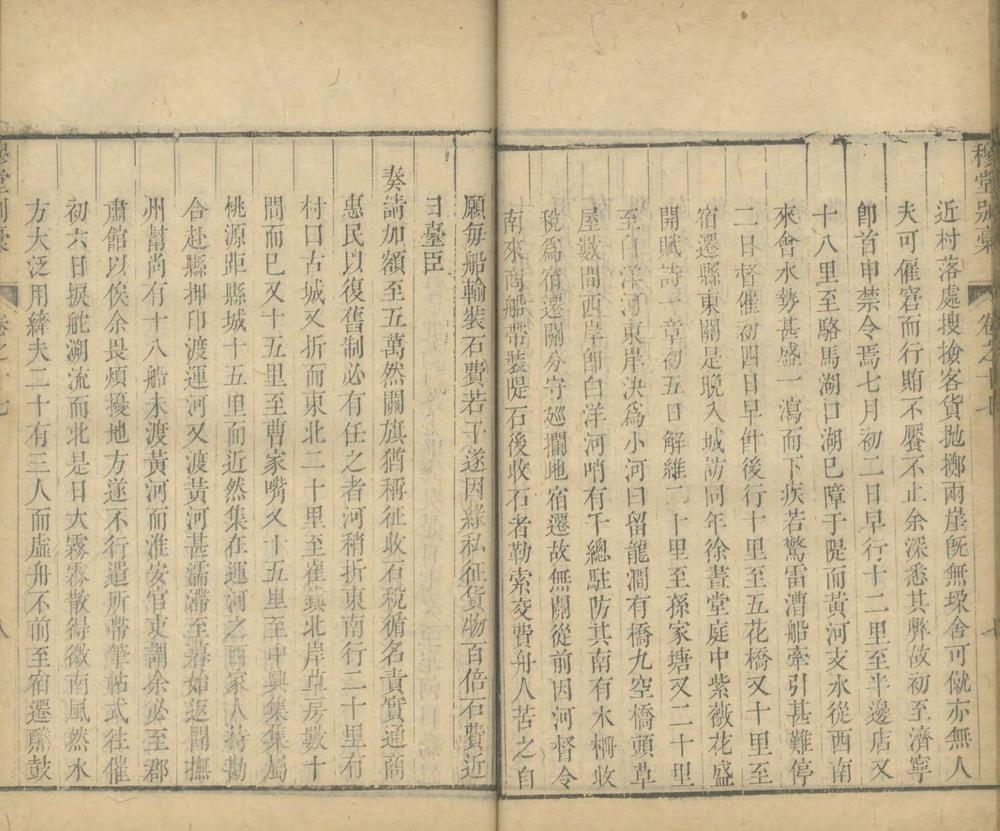 穆堂别稾 卷之十七 七
近村落處搜撿客貨抛擲兩崖既無垜舍可僦亦無人
夫可僱窘而行賄不饜不止余深悉其弊故初至濟寧
卽首申禁令焉七月初二日早行十二里至半邊店又
十八里至駱馬湖口湖已障于隄而黃河支水從西南
來會水勢甚盛一瀉而下疾若驚雷漕船牽引甚難停
二日督催初四日早飰後行十里至五花橋又十里至
宿遷縣東關是晚入城訪同年徐晝堂庭中紫薇花盛
開賦詩一章初五日解維二十里至孫家塘又二十里
至白洋河東岸決爲小河曰留龍澗有橋九空橋頭草
屋數間西岸卽白洋河哨有千總駐防其南有木柵收
稅爲宿遷關分守廵攔地宿遷故無關從前因河督令
南來商船帶裝隄石後收石者勒索交費舟人苦之自
願每船輸裝石費若干遂因緣私征貨物百倍石費近
日臺臣
奏請加額至五萬然關旗猶稱征收石稅循名責實通商
惠民以復舊制必有任之者河稍折東南行二十里有
村口古城又折而東北二十里至崔鎮北岸草房數十
間而已又十五里至曹家嘴又十五里至中興集集屬
桃源距縣城十五里而近然集在運河之西家人持勘
合赴縣押印渡運河又渡黃河甚濡滯至暮始返聞撫
州幫尚有十八船未渡黃河而淮安官吏謂余必至郡
肅館以俟余畏煩擾地方遂不行遣所帶筆帖式往催
初六日捩舵溯流而北是日大霧霧散得微南風然水
方大泛用縴夫二十有三人而虛舟不前至宿遷縣鼓
穆堂别稾 卷之十七 八